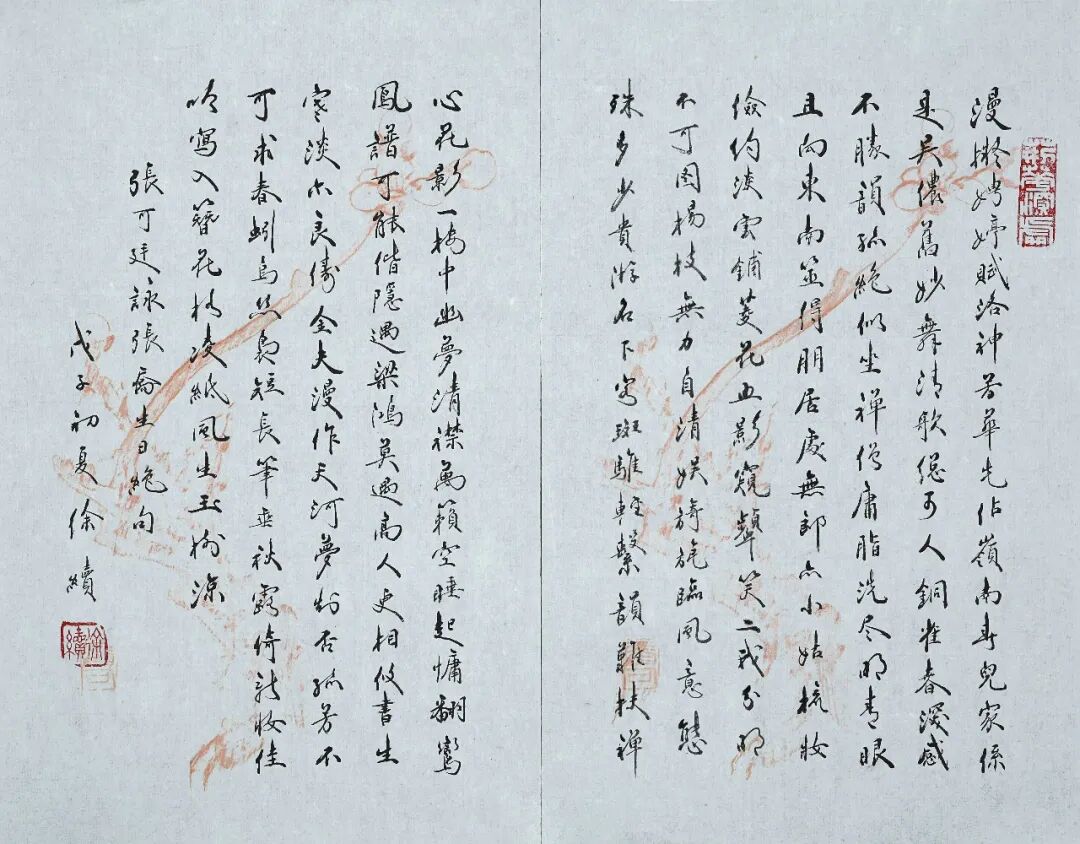 漫擬娉婷賦洛神芳華先佔嶺南春兒家係
是吳儂舊妙舞清歌總可人銅雀春深感
不勝韻孤絕似坐禪僧庸脂洗尽明青眼
且向東南筮得朋居處無郎亦小姑梳妝
儉約淡雲鋪菱花五影窺顰笑二我分明
不可圖楊枝無力自清娛旖旎臨風意態
殊多少貴游石下客斑騅輕繫韻難扶禪
心花影一樓中幽夢清襟萬籟空睡起慵翻鸞
鳳譜可能偕隱遇梁鴻莫遇高人更相攸書生
寒淡亦良儔全夫漫作天河夢否孤芳不
可求春蚓烏絲裊短長筆垂秋露倚新妝佳
吟寫入簪花格凌紙風生玉樹涼
張可廷詠張喬生日絕句
戊子初夏徐續
徐續